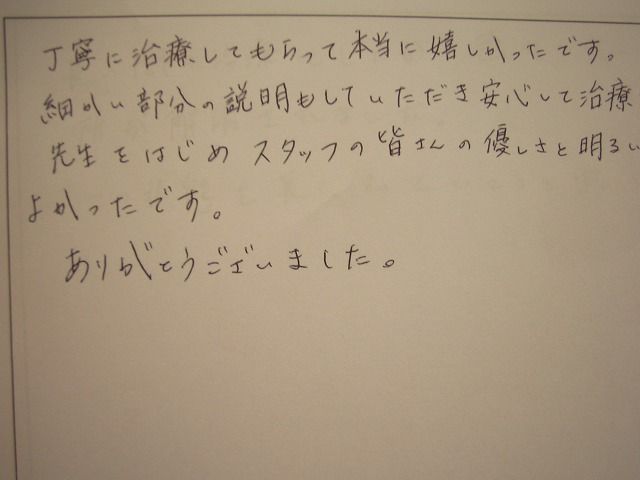 丁寧に治療してもらって本当に嬉しかったです。
細かい部分の説明もしていただき安心して治療
先生をはじめスタッフの皆さんの優しさと明るい
よかったです。
ありがとうございました。